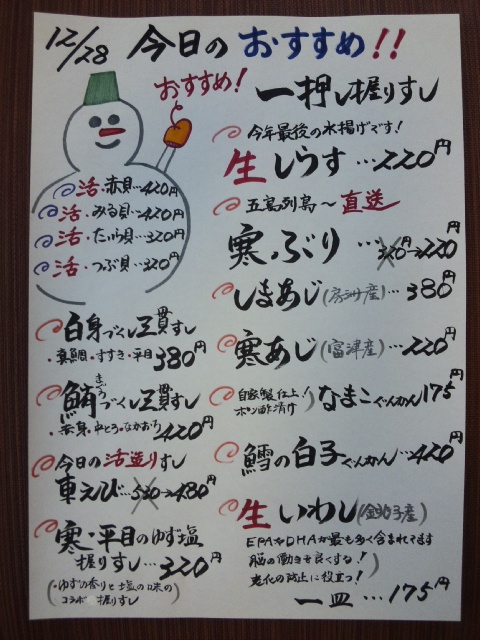 12/28 今日のおすすめ!!
おすすめ!
一押し握りすし
今年最後の水揚げです!
生しらす…220円
五島列島～直送
寒ぶり…320円→220円
しまあじ(房州産)…380
寒あじ(富津産)…220円
自家製仕上!
ポン酢漬け)なまこぐんかん175円
鱈の白子ぐんかん…420円
生いわし(銚子産)
EPAやDHAが最も多く含まれてます
脳の働きを良くする!
老化の防止に役立つ!
一皿…175円
活・赤貝…420円
活・みる貝…420円
活・たいら貝…320円
活・つぶ貝…320円
白身づくし三貫すし
・真鯛・すずき・平目 380円
まぐろ
鮪づくし三貫すし
・赤身・中とろ・なかおち 420円
今日の活造りすし
車えび…530→480円
寒・平目のゆず塩
握りすし…320円
(・ゆずの香りと塩の味の
コラボ握りすし)